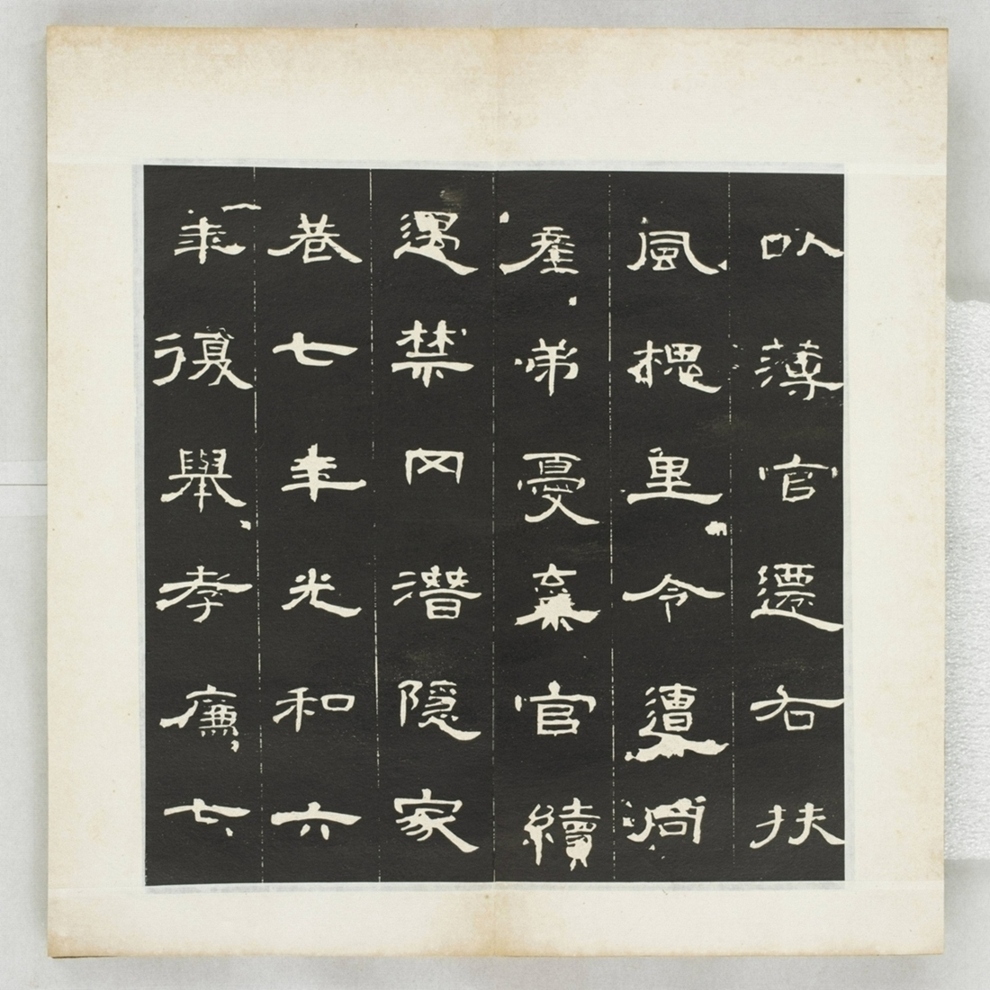 以薄官遷右扶
風槐里令遭同
產弟憂棄官續
遇禁网潛隱家
巷七年光和六
年復舉孝廉七